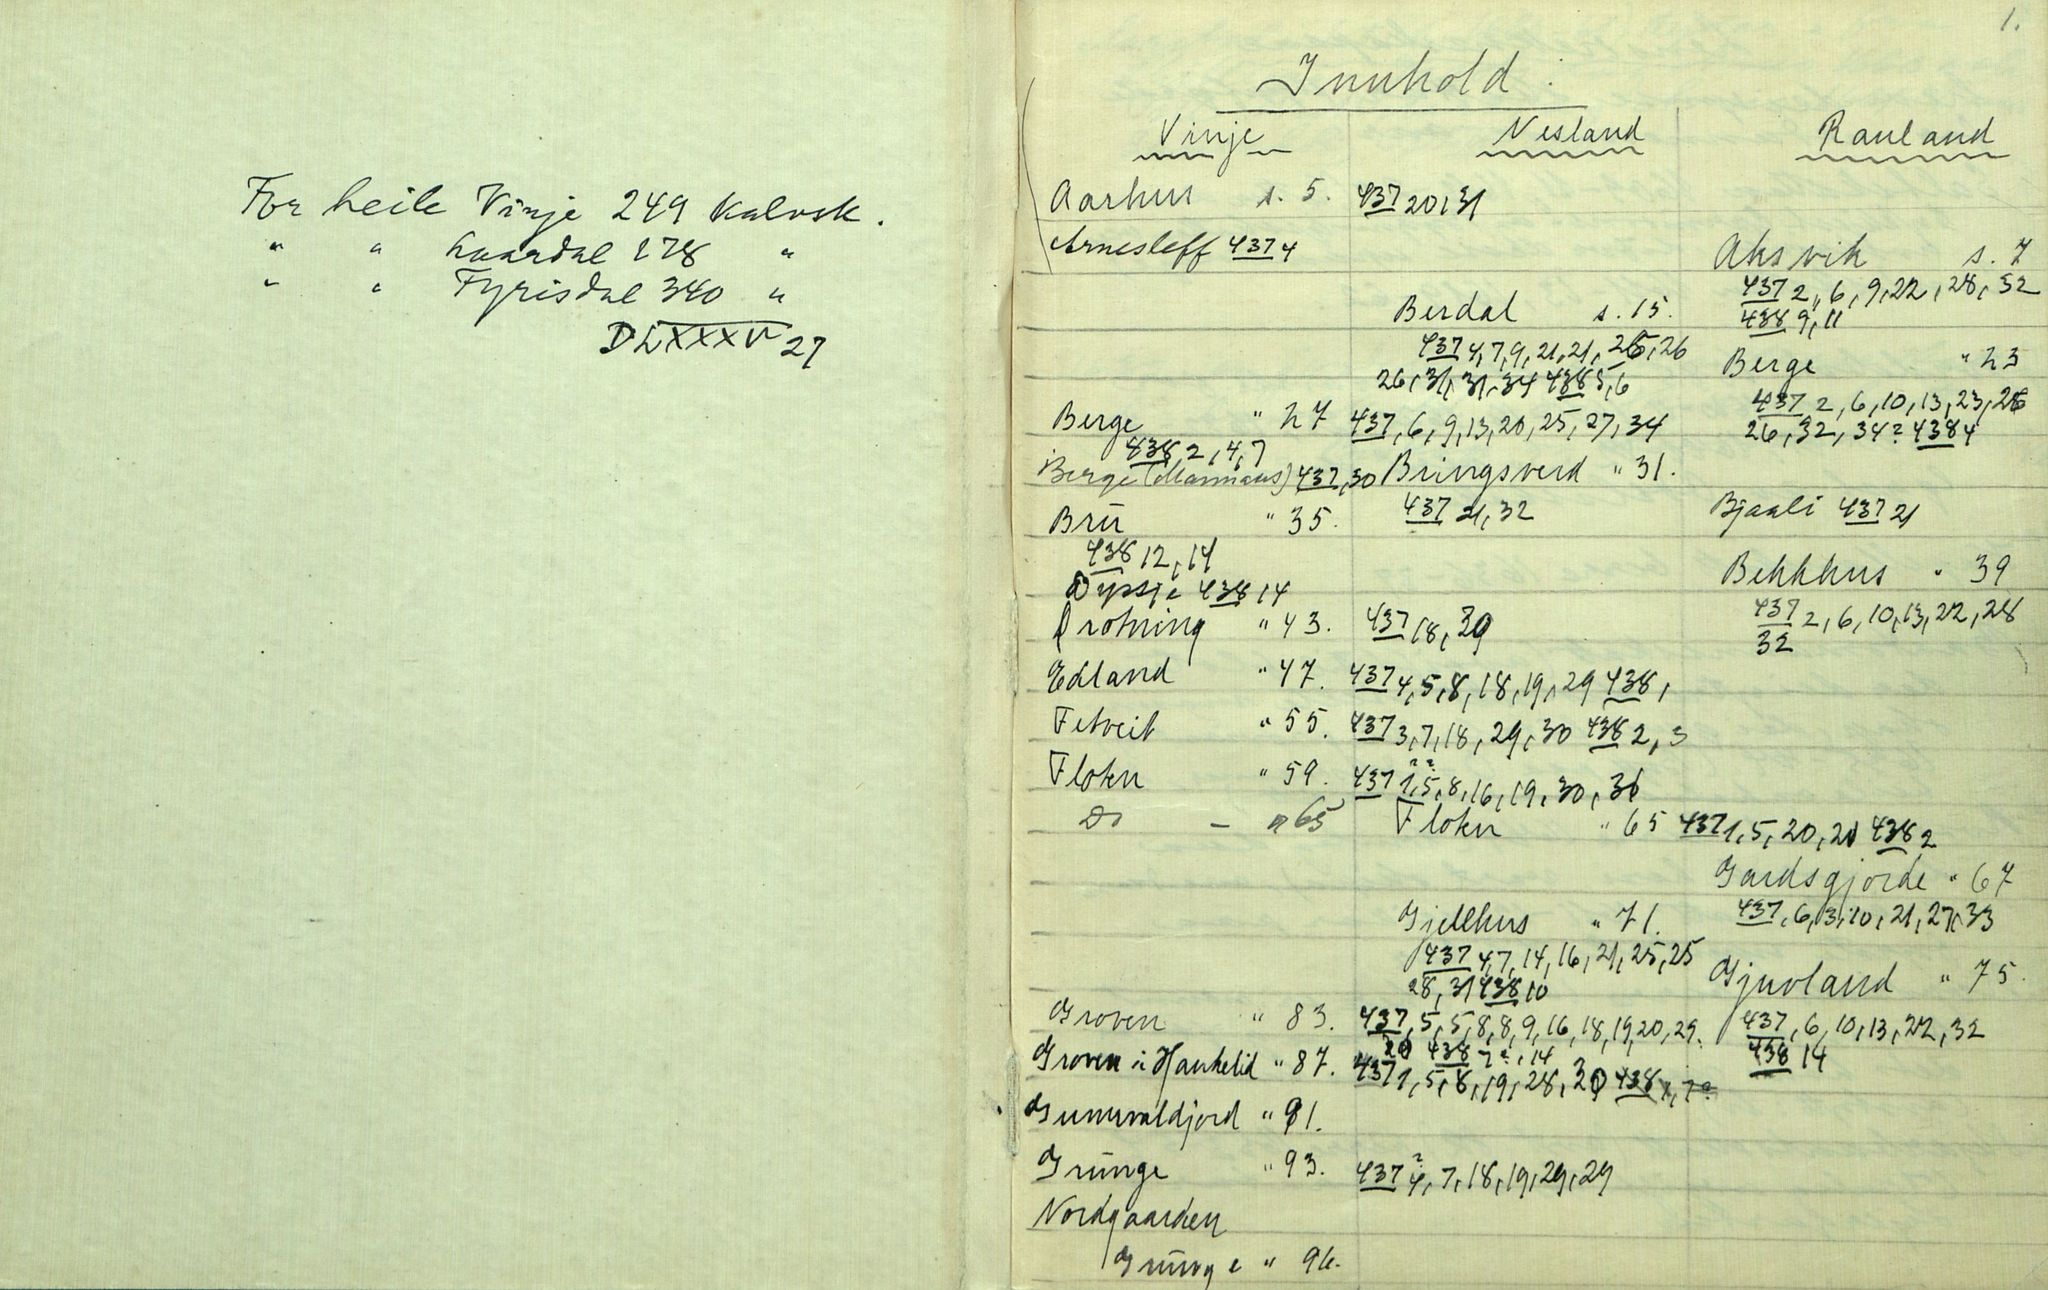 For heile Vinje 249 kalvsk.
" " Laardal 278 "
" " Fyrisdal 340 "
DLXXXV 27
1.
Innhold:
Vinje Nesland Rauland
Aarhus s. 5. 437 20, 31
Arnesleff 437 4
Aksvik s. 7
437 2, 6, 9, 22, 28, 32
438 9, 11
Berdal s. 15.
437 4, 7, 9, 21, 21, 26, 26
26, 31, 31, 34 438 5, 6
Berge " 23
437 2, 6, 10, 13, 23, 26
26, 32, 34? 438 4
Berge " 27 437, 6, 9, 13, 20, 25, 27, 34
438 2, 4, 7
Berge (Marmaus) 437, 30 Bringsverd " 31.
437 21, 32
Brú " 35.
438 12, 14
Bjaali 437 21
Dyrsje 438 14
Bekkhus " 39
437 2, 6, 10, 13, 22, 28
32
Drotning " 43. 437 18, 30
Edland " 47. 437 4, 5, 8, 18, 19, 29 438,
Fetveit " 55. 437 3, 7, 18, 29, 30 438 2, 3
Flotu " 59. 437 1?, 5?, 8, 16, 19, 30, 31
Do — " 65 Flotu " 65 437 1, 5, 20, 21 438 2
Gardsgjorde " 67
437, 6, 3, 10, 21, 27, 33
Gjellhus " 71.
437 4, 7, 14, 16, 21, 25, 25
28, 31 438 10
Gjuvland " 75.
437, 6, 10, 13, 22, 32
438 14
Groven " 83. 437, 5, 5, 8, 8, 9, 16, 18, 19, 20, 29.
30 438 7?, 14
Groven i Haukelid " 87. 437 1, 5, 8, 19, 28, 30 438
Gunnvaldjord " 91.
Grunge " 93. 437 4?, 7, 18, 19, 29, 29
Nordgaarden
Grunge " 96.